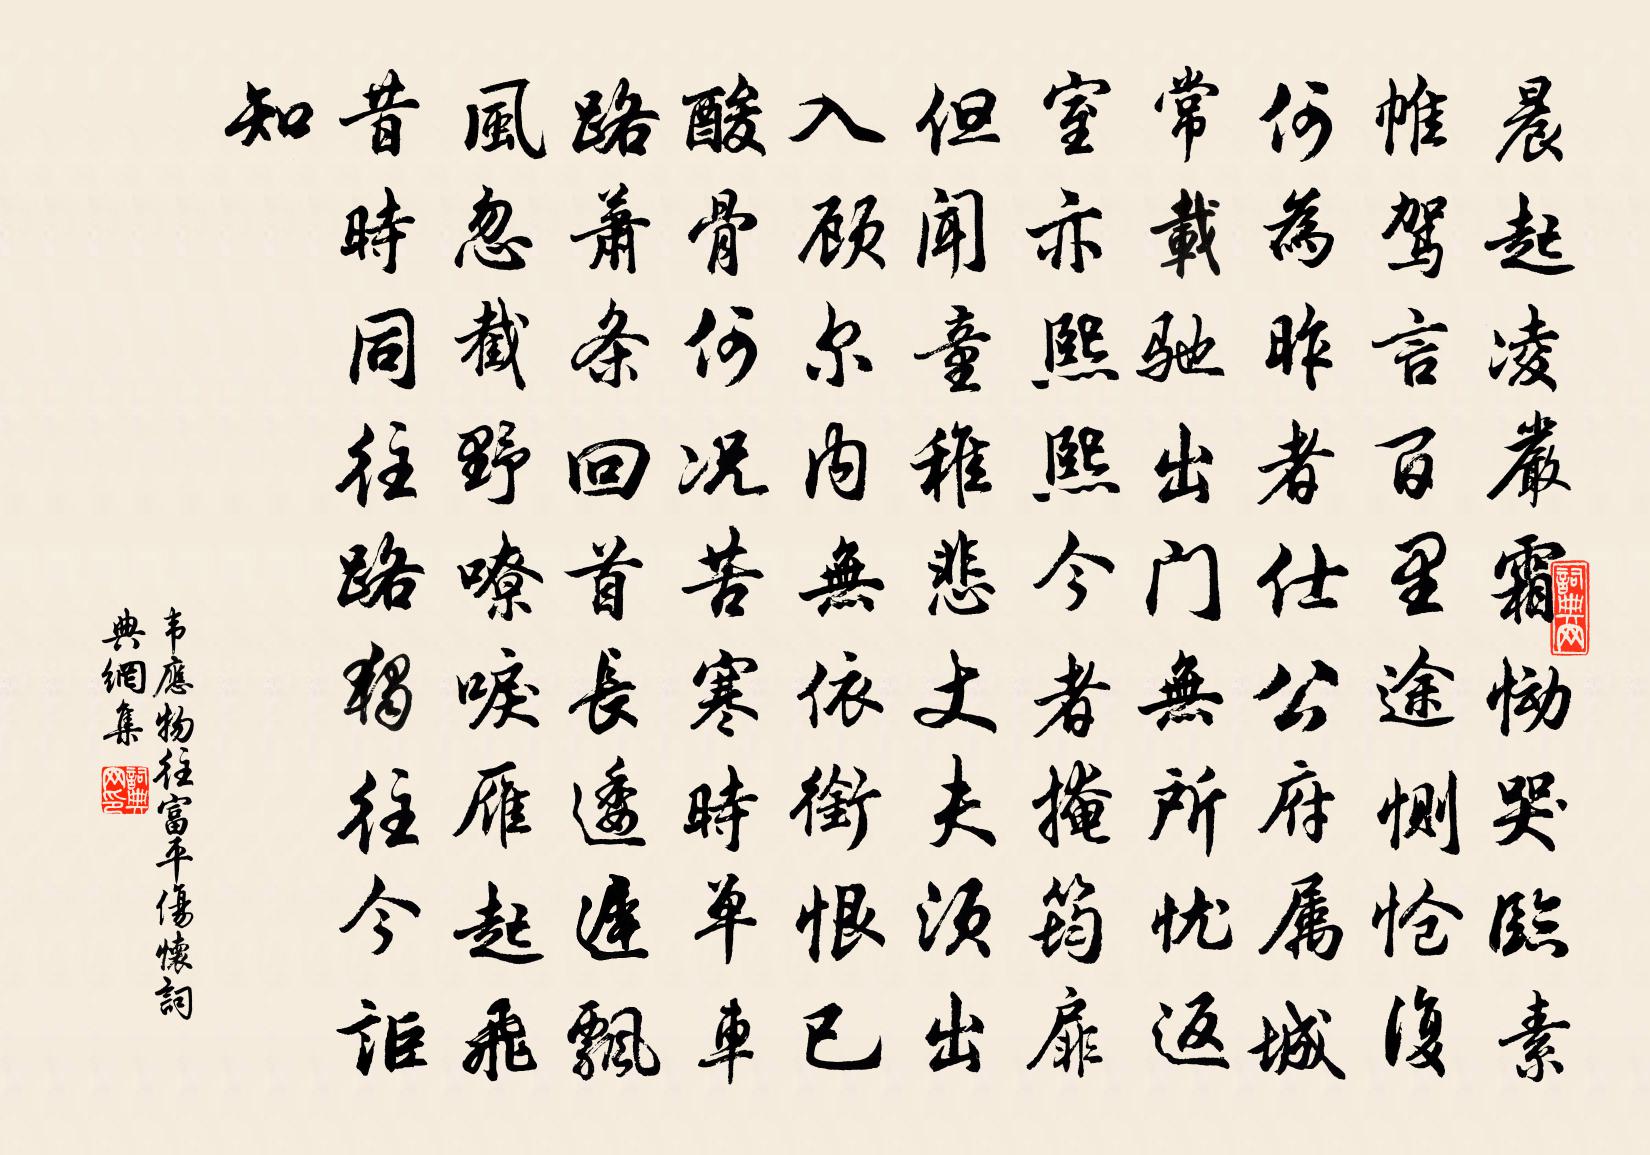 晨起凌嚴霜慟哭臨素
帷駕言百里途惻愴復
何為昨者仕公府属城
常載馳出门無所忧返
室亦熙熙今者掩筠扉
但闻童稚悲丈夫须出
入顾尔内無依銜恨已
酸骨何况苦寒時单車
路萧条回首長逶遲飄
風忽截野嘹唳雁起飛
昔時同往路獨往今詎
知
韦應物往富平傷懷詞
典網集
詞典网
詞典网印